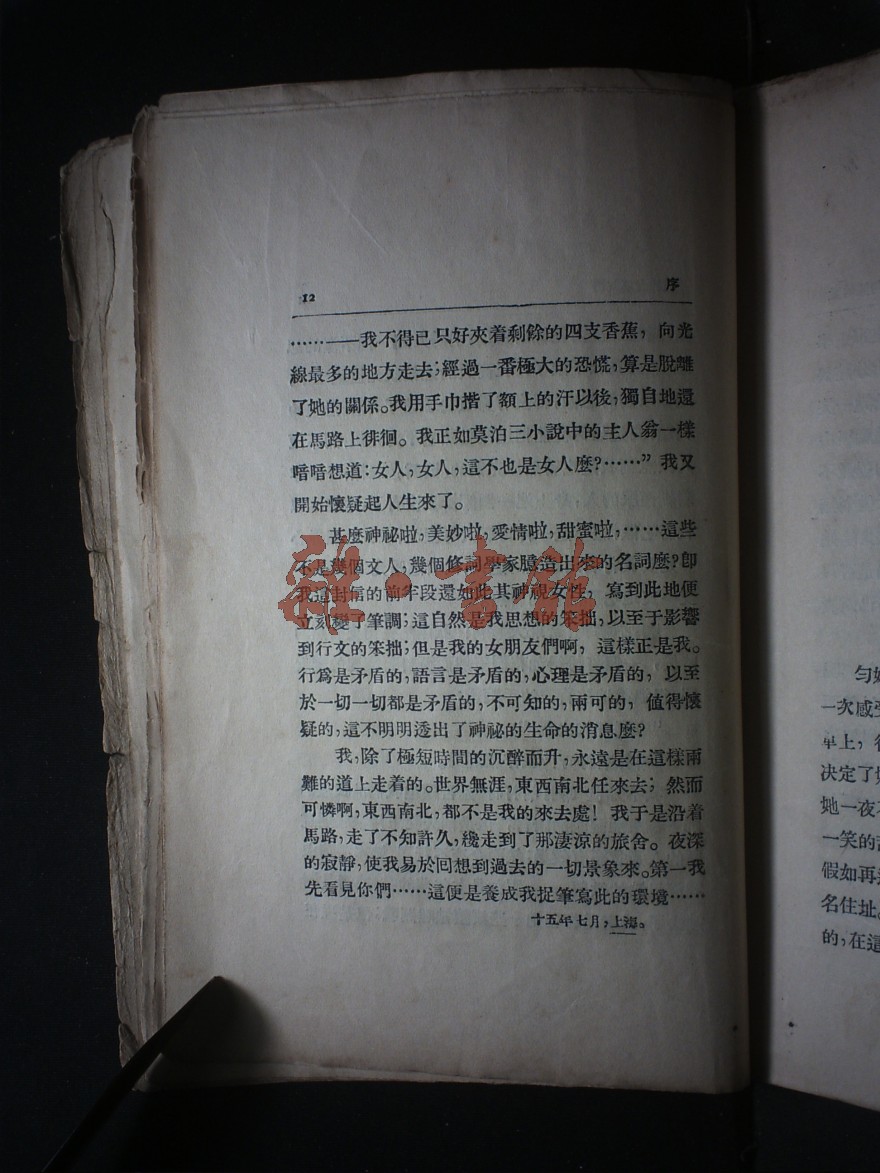 12 序
……——我不得已只好夾着剩餘的四支香蕉，向光
線最多的地方走去；經過一番極大的恐慌，算是脫離
了她的關係。我用手巾揩了額上的汗以後，獨自地還
在馬路上徘徊。我正如莫泊三小說中的主人翁一樣
暗暗想道：女人，女人，這不也是女人麽？……” 我又
開始懷疑起人生來了。
甚麽神祕啦，美妙啦，愛情啦，甜蜜啦，……這些
不是幾個文人，幾個修詞學家臆造出來的名詞麽？卽
我這封信的前半段還如此其神視女性，寫到此地便
立刻變了筆調；這自然是我思想的笨拙，以至于影響
到行文的笨拙；但是我的女朋友們啊，這樣正是我。
行爲是矛盾的，語言是矛盾的，心理是矛盾的，以至
於一切一切都是矛盾的，不可知的，兩可的，値得懷
疑的，這不明明透出了神祕的生命的消息麽？
我，除了極短時間的沉醉而升，永遠是在這樣兩
難的道上走着的。世界無涯，東西南北任來去；然而
可憐啊，東西南北，都不是我的來去處！我于是沿着
馬路，走了不知許久，纔走到了那淒涼的旅舍。夜深
的寂靜，使我易於回想到過去的一切景象來。第一我
先看見你們……這便是養成我捉筆寫此的環境……
十五年七月，上海。
雜·書館
勻
一次感
車上，
决定了
她一夜
一笑的
假如再
名住址。
的，在這